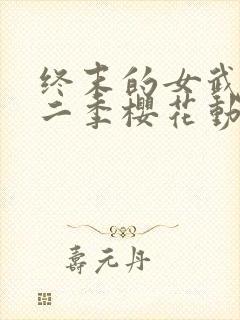 终末的女武
二季樱花動
壽元丹